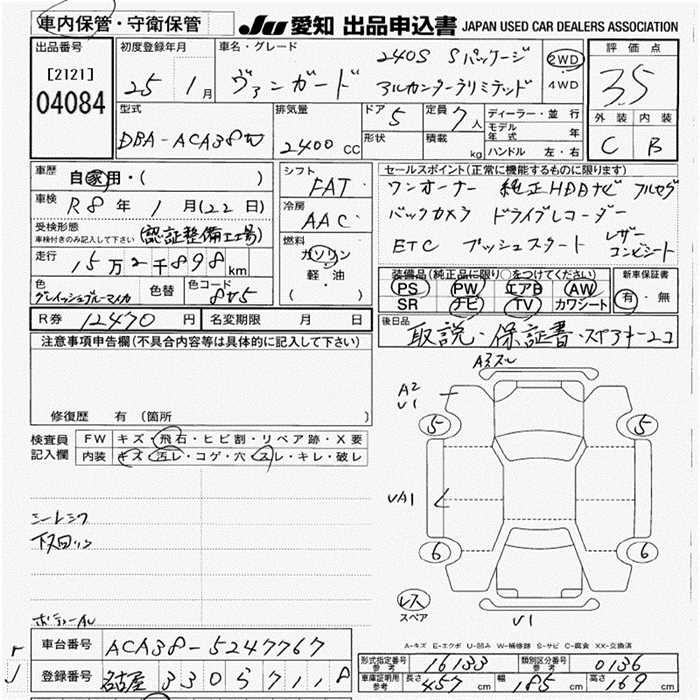 車内保管・守衛保管
JU 愛知 出品申込書 JAPAN USED CAR DEALERS ASSOCIATION
出品番号
[2121]
04084
初度登録年月
25 1月
車名・グレード
240S Sパッケージ
ヴァンガード アルカンターラリミテッド
2WD
4WD
評価点
3.5
外装 内装
C B
型式
DBA-ACA38W
排気量
2400 CC
ドア 5
形状
定員 7人
積載 kg
ディーラー・並行
モデル年式 年
ハンドル 左・右
車歴
自家用・( )
車検 R8年 1月(22日)
受検形態
車検付きのみ記入して下さい
(認証整備工場)
走行
15万2千898km
色
グレイッシュブルーマイカ
色替
色コード
8W5
シフト
FAT
冷房
AAC
燃料
ガソリン
軽・油
( )
セールスポイント(正常に機能するものに限ります)
ワンオーナー 純正HDDナビ フルセグ
バックカメラ ドライブレコーダー
ETC プッシュスタート レザーコンビシート
装備品(純正品に限り○をつけてください)
PS PW エアB AW
SR ナビ TV カワシート
新車保証書
有・無
R券 12470円
名変期限 月 日
後日品
取説・保証書・スペアキー2コ
注意事項申告欄(不具合内容等は具体的に記入して下さい)
修復歴 有(箇所
検査員
記入欄
FW キズ・飛石・ヒビ割・リペア跡・X要
内装 キズ・汚レ・コゲ・穴・スレ・キレ・破レ
A3スレ
A2
U1
5 5
UA1
6 6
レス
スペア
U1
下回リサ
A-キズ E-エクボ U-凹み W-補修跡 S-サビ C-腐食 XX-交換済
車台番号 ACA38-5247767
登録番号 名古屋 330 ら 711
型式指定番号
参考
16133
類別区分番号
参考
0136
車庫証明用
参考
長さ 457cm 幅 185cm 高さ 169cm